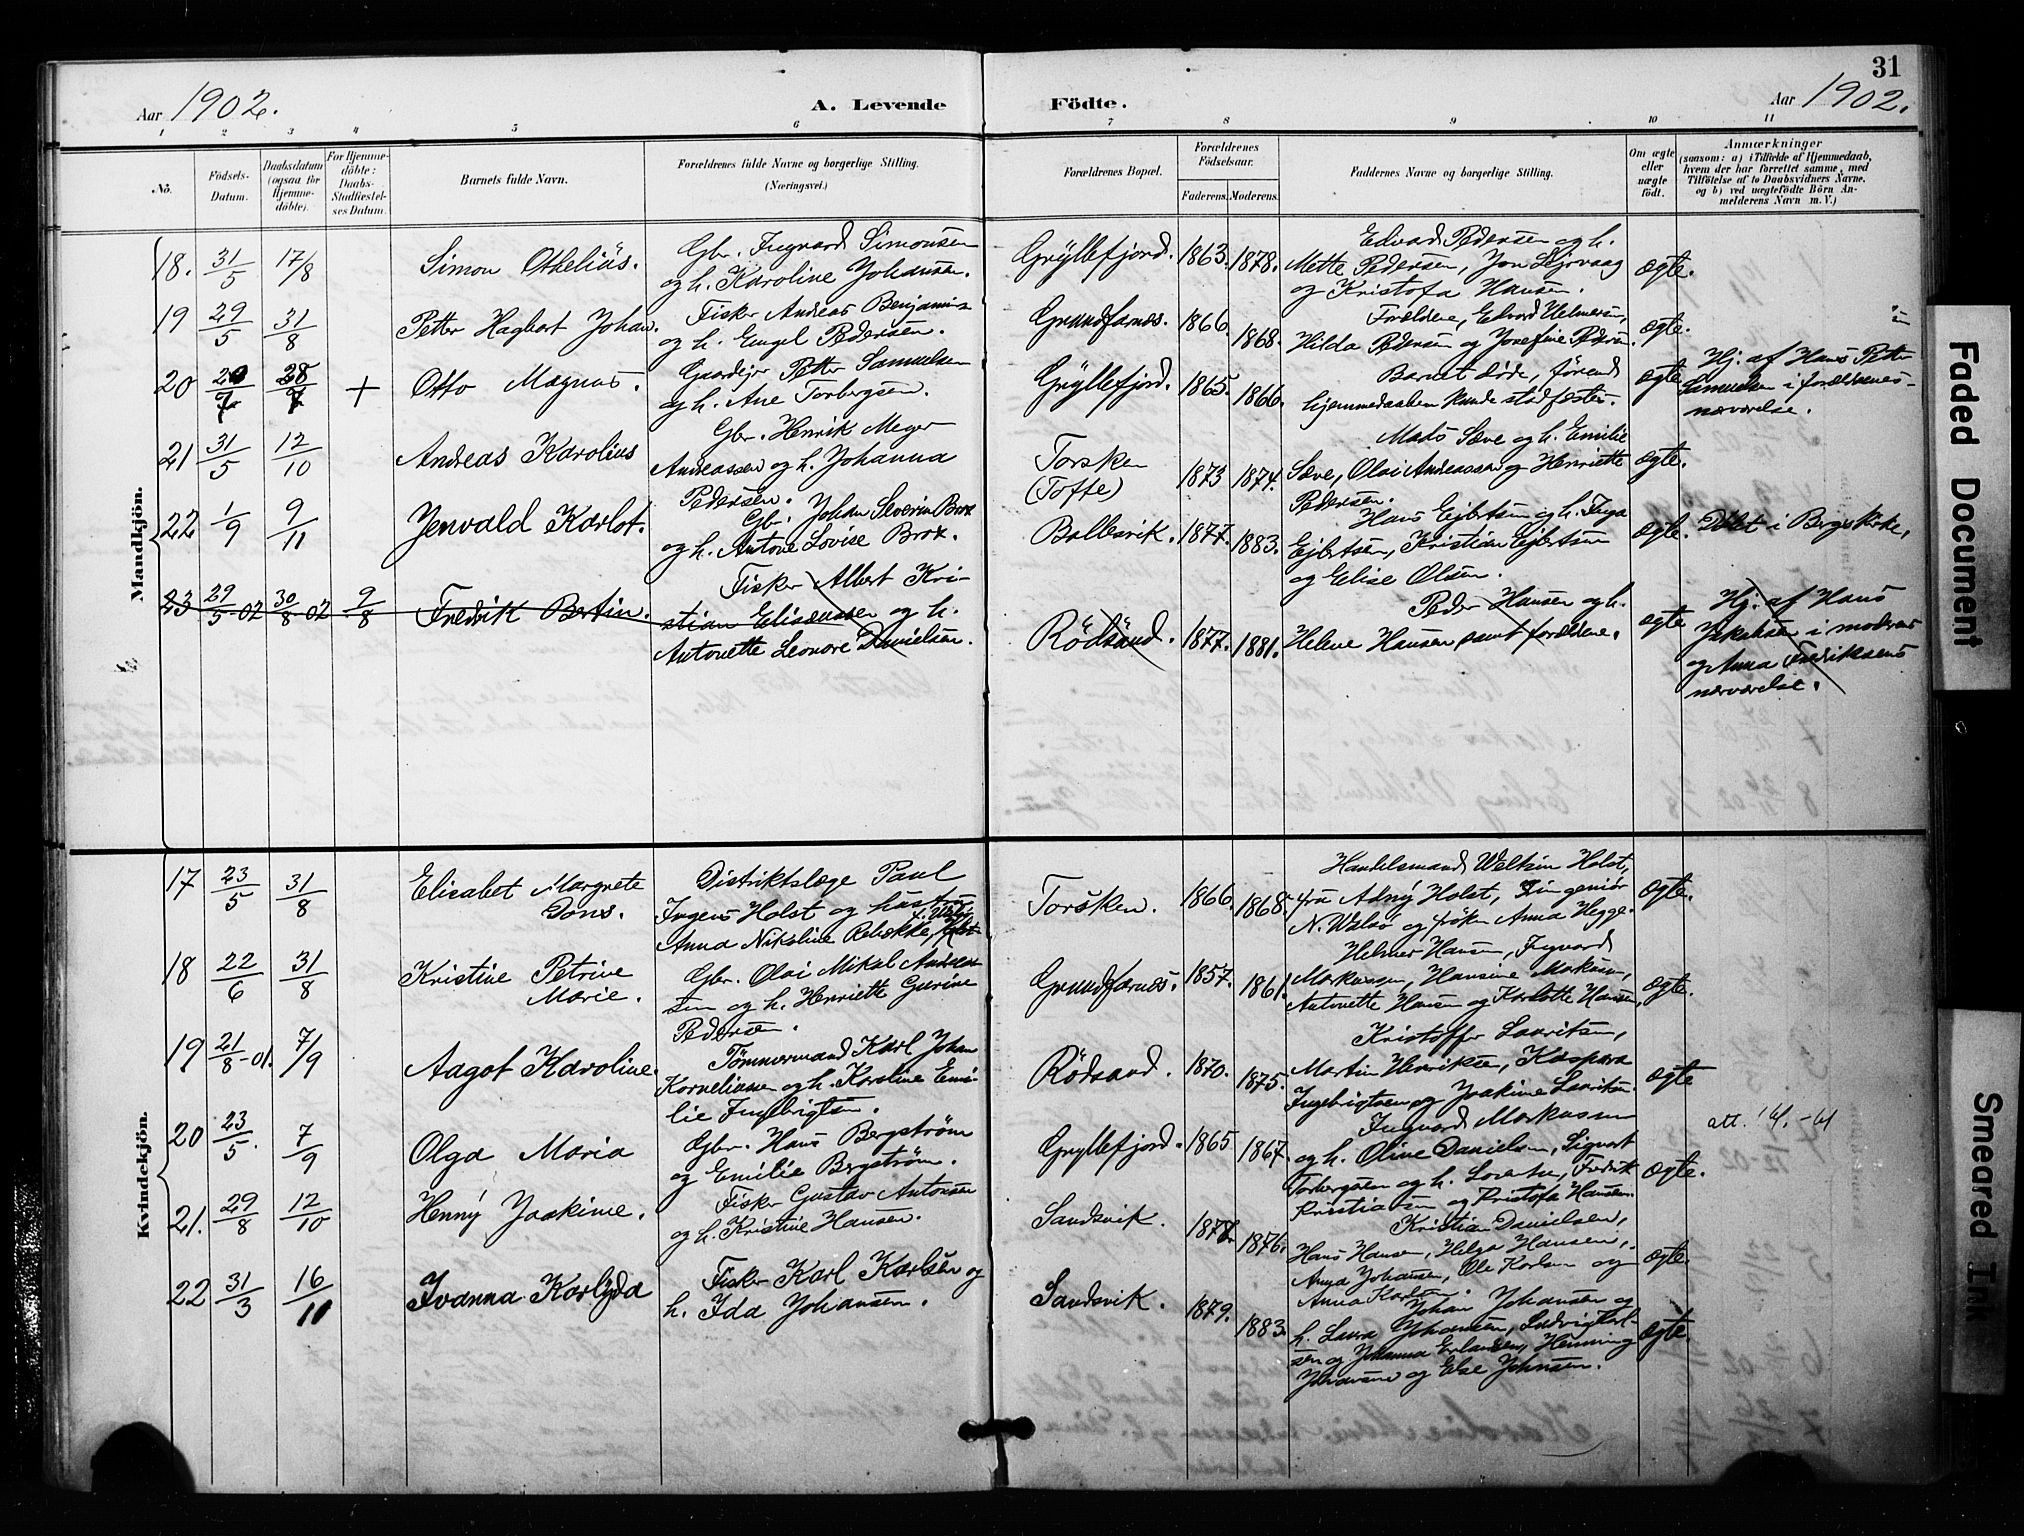 31
Aar 1902.
A. Levende
Födte.
Aar 1902.
1 2 3 4 5 6 7 8 9 10 11
No.
Födsels-
Datum.
Daabsdatum
(ogsaa for
Hjemme-
döbte).
For Hjemme-
döbte:
Daabs-
Stadfæstel-
ses Datum.
Barnets fulde Navn.
Forældrenes fulde Navne og borgerlige Stilling.
(Næringsvei.)
Forældrenes Bopæl.
Forældrenes
Födselsaar.
Faderens. Moderens.
Faddernes Navne og borgerlige Stilling.
Om ægte
eller
uægte
födt.
Anmærkninger
(saasom: a) i Tilfælde af Hjemmedaab,
hvem der har forrettet samme, med
Tilföielse af to Daabsvidners Navne,
og b) ved uægtefödte Börn An-
melderens Navn m. V.)
Mandkjön.
18. 31/5 17/8 Simon Othelius.
Gbr. Ingvard Simonsen
og h. Karoline Johansen.
Gryllefjord. 1863. 1878.
Edvard Pedersen og h.
Mette Pedersen, Jon
og Kristofa Hansen.
ægte.
19 29/5 31/8 Petter Hagbart Johan.
Fisker Andreas
og h. Engel Pedersen.
Grundfarnes. 1866. 1868.
Forældrene, Edvard Helmersen,
Hilda Pedersen og Josefine Pedersen.
ægte.
20 20/7 28/7 + Otto Magnus.
Gaardejer Petter Samuelsen
og h. Ane Torbergsen.
Gryllefjord. 1865. 1866.
Barnet døde, förend
hjemmedaaben kunde stadfestes.
ægte
Hj. af Hans Petter
Simuelsen i forældrenes
nærværelse.
21 31/5 12/10 Andreas Karolius
Gbr. Henrik Meyer
Andreassen og h. Johanna
Pedersen.
Torsken
(Tofte)
1873 1874.
Mads Sæve og h. Emilie
Sæve, Olai Andreassen og Henriette
Pedersen.
ægte.
22 1/9 9/11 Jenvald Karlot.
Gbr. Johan Severin Brox
og h. Antone Lovise Brox.
Ballesvik. 1877. 1883.
Hans Ejbertsen og h. Inga
Ejbertsen, Kristian Ejbertsen
og Elise Olsen.
ægte.
Döbt i Bergs Kirke,
23 29/5-02 30/8-02 9/8 Fredrik Bertin.
Fisker Albert Kri-
stian Eliseussen og h.
Antonette Leonore Danielsen.
Rödsand. 1877. 1881.
Peder Hansen og h.
Helene Hansen samt forældrene.
ægte
Hj. af Hans
Jakobsen i moderens
og Anna Fredriksens
nærværelse.
Kvindekjön.
17 23/5 31/8 Elisabet Margrete
Dons.
Distriktslæge Paul
Jugens Holst og hustru
Anna Nikoline Rebekke,
Torsken. 1866. 1868.
Handelsmand Holst,
fru Holst, Ingeniör
N. og fröken Anna Hegge.
ægte.
18 22/6 31/8 Kristine Petrine
Marie.
Gbr. Olai Mikal Andreas-
sen og h. Henriette Gurine
Pedersen.
Grundfarnes. 1857. 1861.
Helmer Hansen, Ingvard
Markussen, Hansine Makusen,
Antonette Hansen og Karlotte Hansen
ægte.
19 21/8-01. 7/9 Aagot Karoline.
Tömmermand Karl Johan
Korneliussen og h. Karoline Emi-
lie Ingebrigtsen.
Rödsand. 1870. 1875.
Kristoffer Lauritsen,
Martin Henriksen, Kaspara
Ingebrigtsen og Joakine Lauritsen.
ægte
20 23/5. 7/9 Olga Maria
Gbr. Hans Bergström
og Emilie Bergström.
Gryllefjord. 1865 1867.
Ingvard Markussen
og h. Oline Danielsen, Sigvart
Torbergsen og h. Lorentse, Fredrik
Kristiansen og Kristofa Hansen.
ægte.
att. 1/4.-41
21. 29/8 12/10 Henny Joakime.
Fisker Gustav Antonsen
og h. Kristine Hansen.
Sandsvik. 1877. 1876.
Kristian Danielsen,
Hans Hansen, Helga Hansen,
Anna Johansen, Ole Karlsen og
Anna Karlsen.
ægte.
22 31/3 16/11 Ivanna Karlyda
Fisker Karl Karlsen og
h. Ida Johansen.
Sandsvik. 1879. 1883.
Johan Johansen og
h. Laura Johansen, Ludvig Karl-
sen og Johanna Erlandsen, Henning
Johansen og Else Johnsen.
ægte.
Faded Document
Smeared Ink